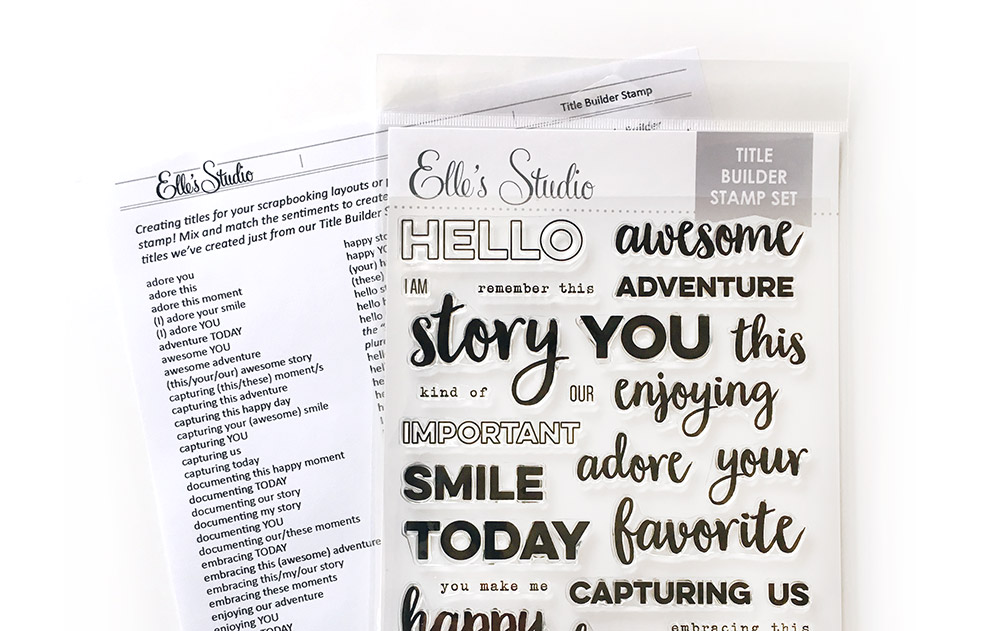 Title Builder Stamp
Elle's Studio
Creating titles for your scrapbooking layouts or
stamp! Mix and match the sentiments to create
titles we've created just from our Title Builder
adore you
adore this
adore this moment
(I) adore your smile
(I) adore YOU
adventure TODAY
awesome YOU
awesome adventure
(this/your/our) awesome story
capturing (this/these) moment/s
capturing this adventure
capturing this happy day
capturing your (awesome) smile
capturing YOU
capturing us
capturing today
documenting this happy moment
documenting TODAY
documenting our story
documenting my story
documenting YOU
documenting our/these moments
embracing TODAY
embracing this (awesome) adventure
embracing this/my/our story
embracing these moments
enjoying our adventure
enjoying YOU
happy
happy
(your)
(these)
hello
hello
hello
the
Elle's Studio
TITLE
BUILDER
STAMP SET
HELLO awesome
I AM remember this ADVENTURE
story YOU this
kind of OUR enjoying
IMPORTANT
adore your
SMILE
TODAY favorite
you make me CAPTURING US
happy embracing this